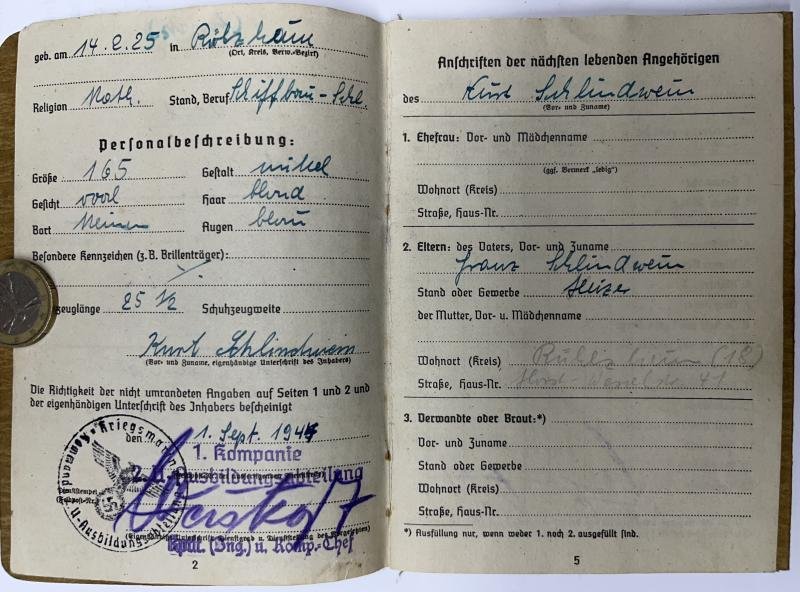 geb. am 14.2.25 in Rülzheim
(Ort, Kreis, Verw.-Bezirk)
Religion Kath. Stand, Beruf Schiffbau-Schl.
Personalbeschreibung:
Größe 165 Gestalt mittel
Gesicht oval Haar blond
Bart keinen Augen blau
Besondere Kennzeichen (z. B. Brillenträger):
zeuglänge 25 1/2 Schuhzeugweite
Kurt Schlindwein
(Vor- und Zuname, eigenhändige Unterschrift des Inhabers)
Die Richtigkeit der nicht umrandeten Angaben auf Seiten 1 und 2 und
der eigenhändigen Unterschrift des Inhabers bescheinigt
den 1. Sept. 1944
1. Kompanie
2. U-Ausbildungsabteilung
Kommando Kriegsmarine
U-Ausbildungsabteilung
Dienststempel
(Feldpost-Nr.)
(Eigenhändige Unterschrift, Dienstgrad u. Dienststellung des Vorgesetzten)
Kptlt. (Ing.) u. Komp.-Chef
2
Anschriften der nächsten lebenden Angehörigen
des Kurt Schlindwein
(Vor- und Zuname)
1. Ehefrau: Vor- und Mädchenname
(ggf. Vermerk „ledig“)
Wohnort (Kreis)
Straße, Haus-Nr.
2. Eltern: des Vaters, Vor- und Zuname
Franz Schlindwein
Stand oder Gewerbe Heizer
der Mutter, Vor- u. Mädchenname
Wohnort (Kreis) Rülzheim (18)
Straße, Haus-Nr. Horst-Wesselstr. 41
3. Verwandte oder Braut:*)
Vor- und Zuname
Stand oder Gewerbe
Wohnort (Kreis)
Straße, Haus-Nr.
*) Ausfüllung nur, wenn weder 1. noch 2. ausgefüllt sind.
5